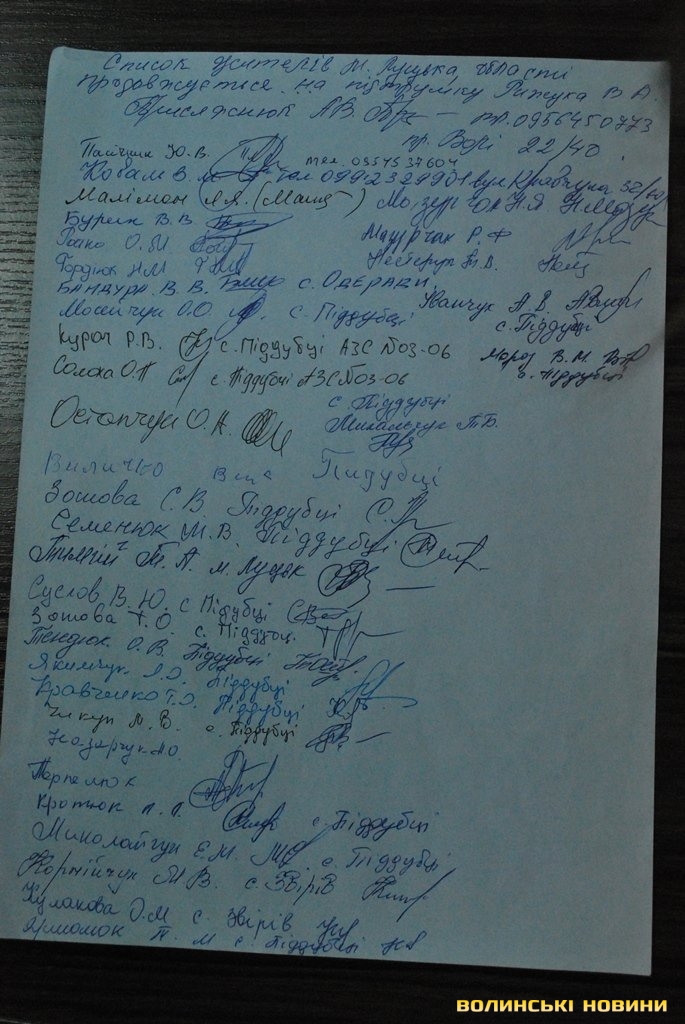 Список жителів м. Луцька, області
продовжується на підтримку Рижука В А.
Присяжнюк А.В. пр. 0956450773
пр. Волі 22/40
Панчук Ю. В. тел. 0954537604
Кобак В. М. тел 0992329901 вул Кравчука 32
Малімон Я.Я. Мазурчак Н.Я.
Бурик В. В. Мазурчак Р. Ф
О. М. Нестерук В.
Гордіюк НМ
Бандура В. В. с. Одеради
Мосейчук О.О. с. Піддубці Іванчук А В
с. Піддубці
Курач Р.В. с. Піддубці АЗС №03-06 Мороз В. М.
Солоха О.П с. Піддубці АЗС №03-06 с. Піддубці
с. Піддубці
Остапчук О.А. Михальчук Т.Б.
Величко Підубці
Зотова С. В Піддубці
Семенюк М. В Піддубці
Т. А. м. Луцьк
Суслов В. Ю. с Підубці
Зотова Т. О. с. Піддубці
Тендюк О. В. Піддубці
Якимчук Л.О. Піддубці
Кравченко Т.О. Піддубці
М. В. с. Піддубці
Назарчук
Терпелюк
Кротюк с. Піддубці
Миколайчук Є.М. с. Піддубці
Корнійчук М. В. с. Звірів
Кулакова О.М с. Звірів
М с Піддубці
ВОЛИНСЬКІ НОВИНИ